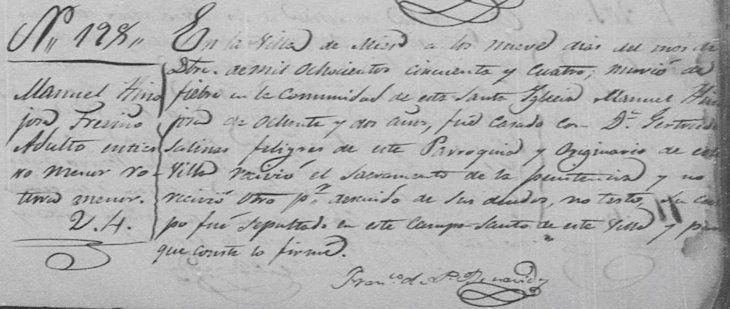 N.. 128..
Manuel Hino
josa Fresino
Adulto entier
ro menor ro-
tura menor.
2.4.
En la Villa de Mier a los nueve dias del mes de
Dbre. de mil ochocientos cincuenta y cuatro, murió de
fiebre en la Comunidad de esta Santa Yglesia Manuel Hino
josa de ochenta y dos años, fue casado con D.ª Gertrudis
Salinas feligres de este Parroquia y Originario de esta
Villa recivió el Sacramento de la penitencia y no
recivió otro pr. descuido de sus deudos, no testó, su cuer
po fué sepultado en este Campo Santo de esta Villa y para
que conste lo firmé.
Franco. de P.